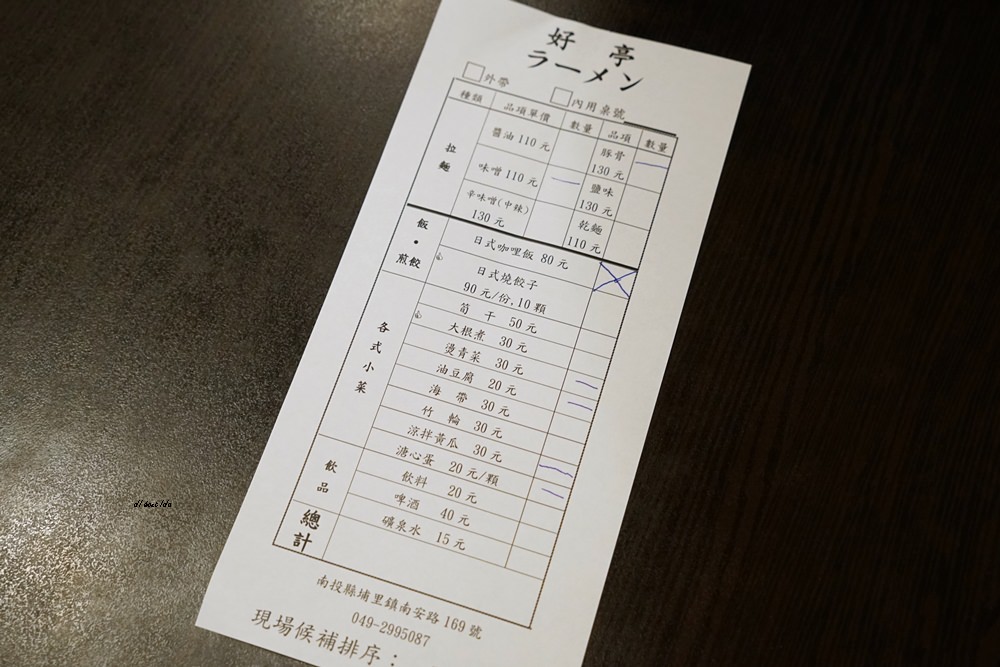 好 亭
ラーメン
外帶 內用 桌號
種類 品項單價 數量 品項 數量
拉麵
醬油 110 元 豚骨 130 元 一
味噌 110 元 一 鹽味 130 元
辛味噌(中辣) 130 元 乾麵 110 元
飯・煎餃
日式咖哩飯 80 元
日式燒餃子
90 元/份,10 顆
各式小菜
筍 干 50 元
大根煮 30 元
燙青菜 30 元
油豆腐 20 元 一
海 帶 30 元 一
竹 輪 30 元
涼拌黃瓜 30 元
溏心蛋 20 元/顆 一
飲品
飲料 20 元 一
啤酒 40 元
礦泉水 15 元
總計
南投縣埔里鎮南安路 169 號
049-2995087
現場候補排序：